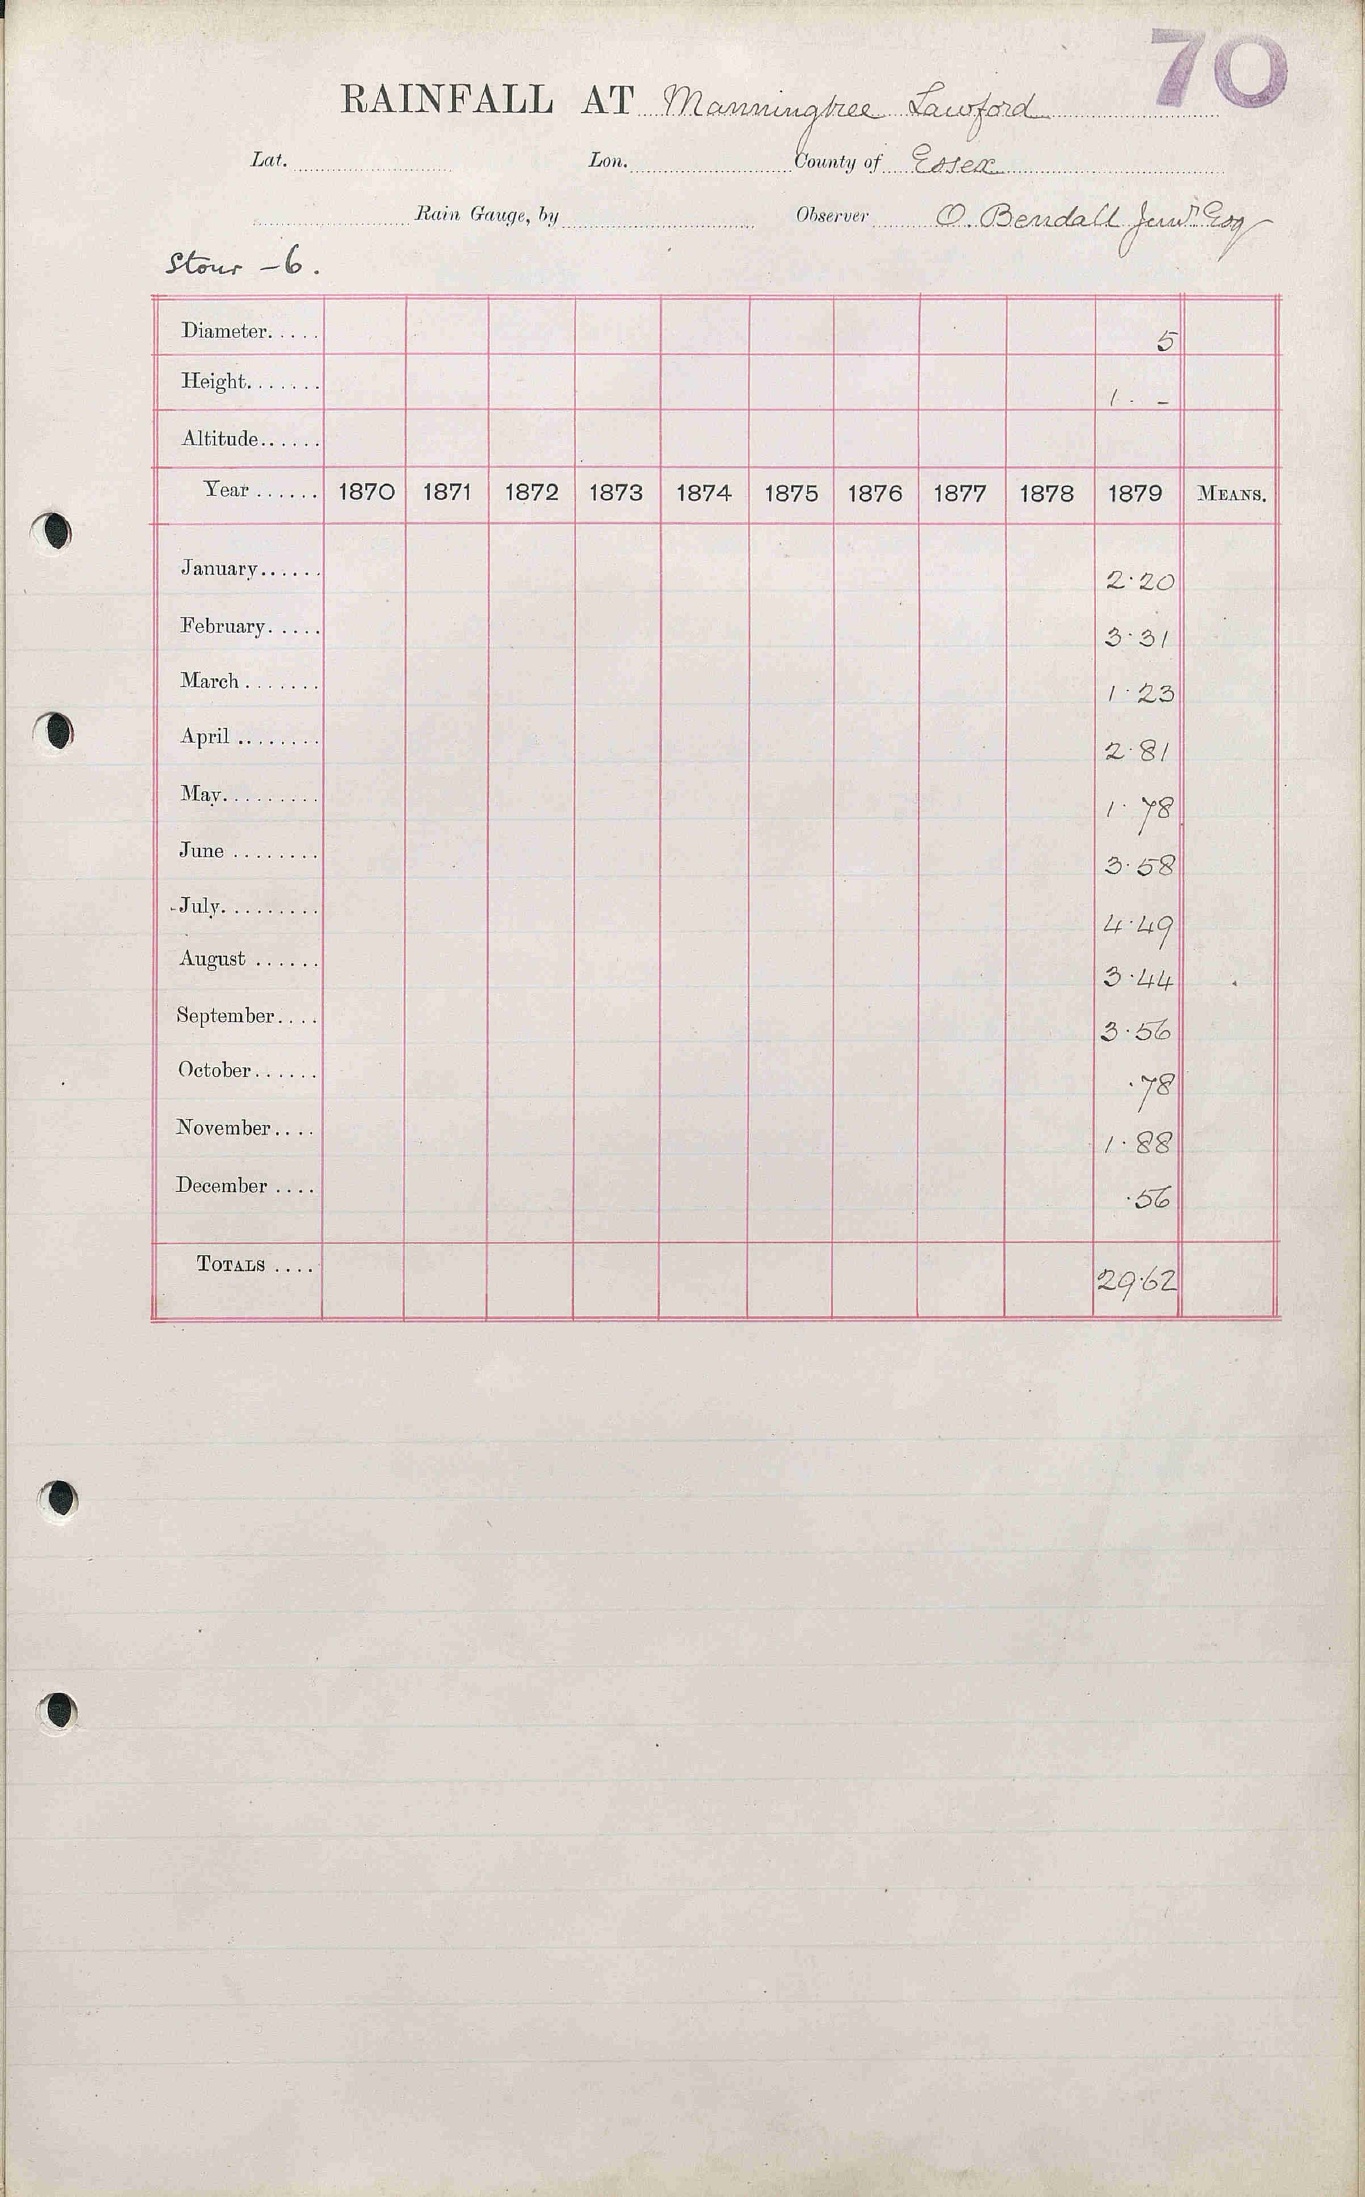 70
RAINFALL AT Manningtree Lawford
Lat. Lon. County of Essex
Rain Gauge, by Observer O. Bendall Junr Esq
Stour - 6.
Diameter..... 5
Height....... 1 . -
Altitude......
Year...... 1870 1871 1872 1873 1874 1875 1876 1877 1878 1879 MEANS.
January...... 2.20
February..... 3.31
March....... 1.23
April........ 2.81
May......... 1.78
June........ 3.58
July......... 4.49
August...... 3.44
September.... 3.56
October...... .78
November.... 1.88
December.... .56
TOTALS.... 29.62